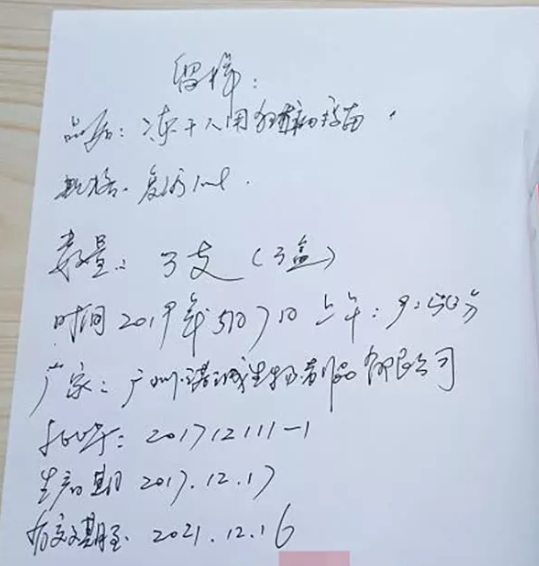 留样：
品名：冻干人用狂犬病疫苗
规格：复溶1ml.
数量：3支（3盒）
时间2019年5月7日上午：9:50分
厂家：广州诺诚生物制品有限公司
批号：201712111-1
生产日期 2017.12.17
有效期至 2021.12.16